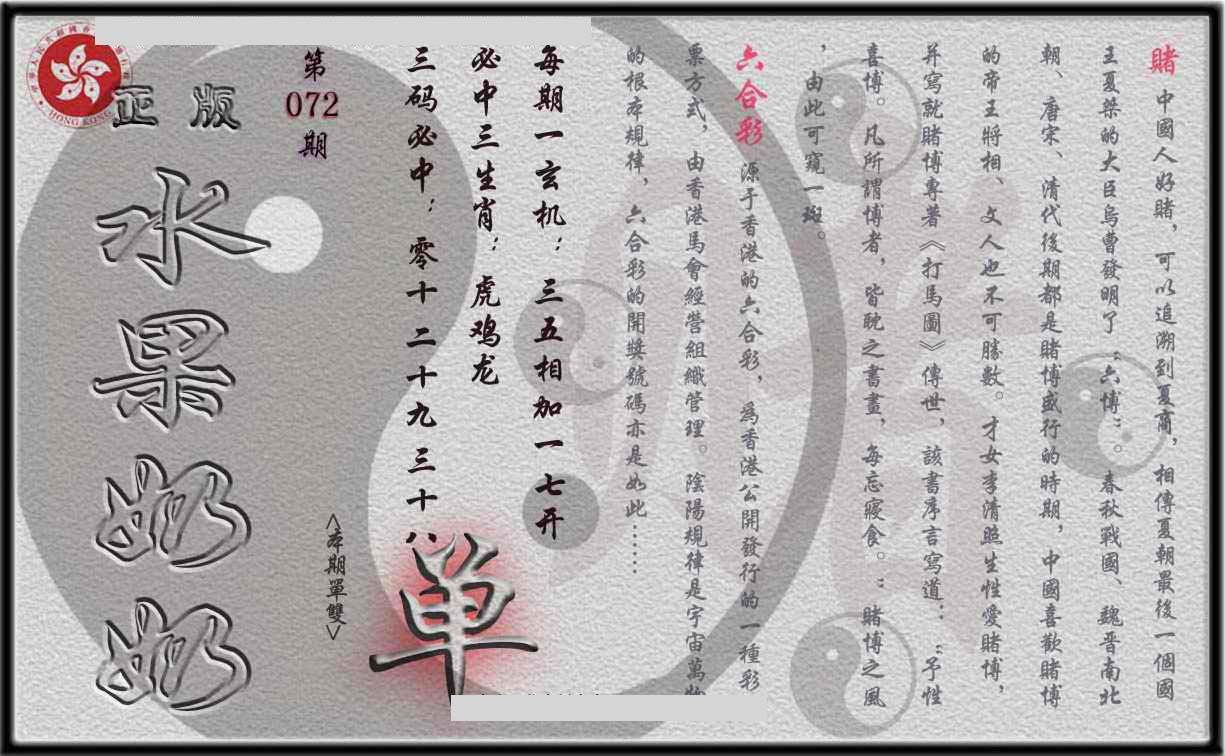 賭 中國人好賭，可以追溯到夏商，相傳夏朝最後一個國
王夏桀的大臣烏曹發明了“六博”。春秋戰國、魏晋南北
朝、唐宋、清代後期都是賭博盛行的時期，中國喜歡賭博
的帝王將相、文人也不可勝數。才女李清照生性愛賭博，
并寫就賭博專著《打馬圖》傳世，該書序言寫道：“予性
喜博。凡所謂博者，皆耽之書畫，每忘寢食。”賭博之風
，由此可窺一斑。
六合彩 源于香港的六合彩，為香港公開發行的一種彩
票方式，由香港馬會經營組織管理。陰陽規律是宇宙萬物
的根本規律，六合彩的開獎號碼亦是如此……
每期一玄机：三五相加一七开
必中三生肖：虎鸡龙
三码必中：零十二十九三十八
单
<本期單雙>
第
072
期
正版
水果奶奶
HONG KONG